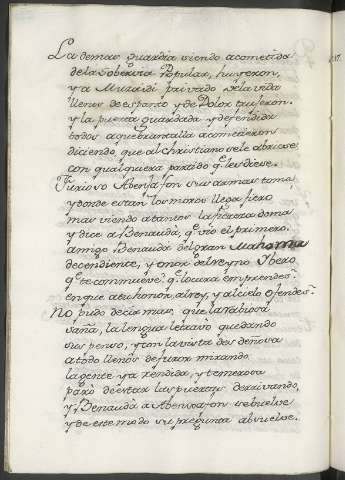 La demas guardia viendo acometida
de la soberuia Popular, huyeron,
y a Muzaidi priuado de la vida
llenos de espanto y de Dolor pusieron.
y la puerta guardada y defendida
todos a quebrantalla acometieron
diciendo, que al Christiano se le abriese
con qualquiera partido q̃ les diese.
Furioso Abenjafon sus armas toma,
y donde estan los moros llega fiero
mas viendo a tantos la fiereza doma
y dice a Benauda, que vio el primero.
amigo Benauda del gran Mahoma
decendiente, y onor del reyno Ibero
q̃ te commueve? q̃ locura emprendes?
en que a tu honor, al rey, y al cielo ofendes?
No pudo decir mas, que la rabiosa
saña, la lengua le trauo quedando
suspenso, y con la vista desdeñosa
a todo llenos de furor mirando
la gente ya rendida, y temerosa
paro de estar las puertas derriuando,
y Benauda a Abenjafon se buelue
y de este modo su pregunta absuelue.